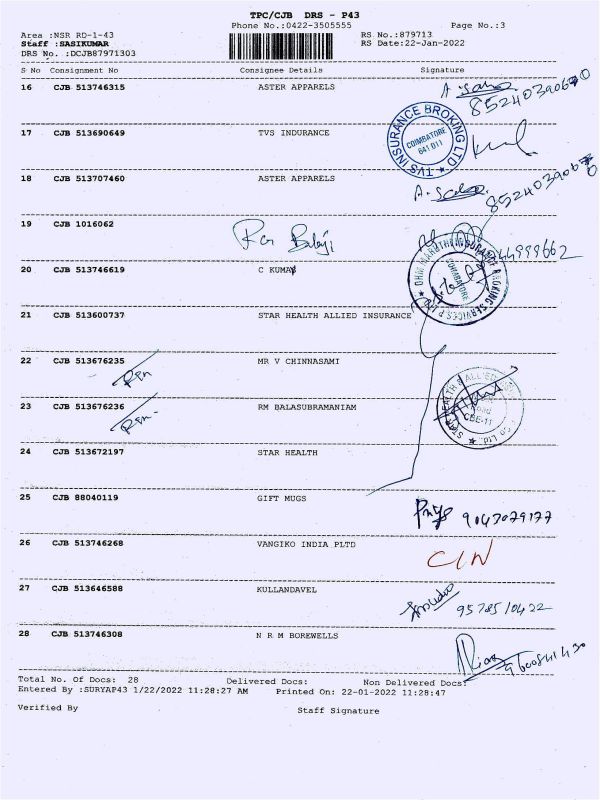 TPC/CJB DRS - P43
Phone No.:0422-3505555 Page No.:3
Area :NSR RD-1-43 RS No.:879713
Staff :SASIKUMAR RS Date:22-Jan-2022
DRS No. :DCJB87971303
S No Consignment No Consignee Details Signature
16 CJB 513746315 ASTER APPARELS
17 CJB 513690649 TVS INDURANCE
TVS INSURANCE BROKING LTD
COIMBATORE
641 011
18 CJB 513707460 ASTER APPARELS
19 CJB 1016062
20 CJB 513746619 C KUMAY
COIMBATORE
21 CJB 513600737 STAR HEALTH ALLIED INSURANCE
22 CJB 513676235 MR V CHINNASAMI
23 CJB 513676236 RM BALASUBRAMANIAM
CBE-11
24 CJB 513672197 STAR HEALTH
25 CJB 88040119 GIFT MUGS
9043079177
26 CJB 513746268 VANGIKO INDIA PLTD
27 CJB 513646588 KULLANDAVEL
28 CJB 513746308 N R M BOREWELLS
Total No. Of Docs: 28 Delivered Docs: Non Delivered Docs:
Entered By :SURYAP43 1/22/2022 11:28:27 AM Printed On: 22-01-2022 11:28:47
Verified By Staff Signature